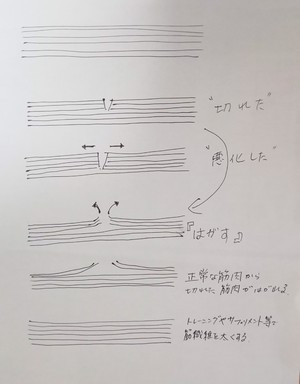 "切れた"
"悪化した"
『はがす』
正常な筋肉から
切れた筋肉がはがれる
トレーニングやサプリメント等で
筋繊維を太くする